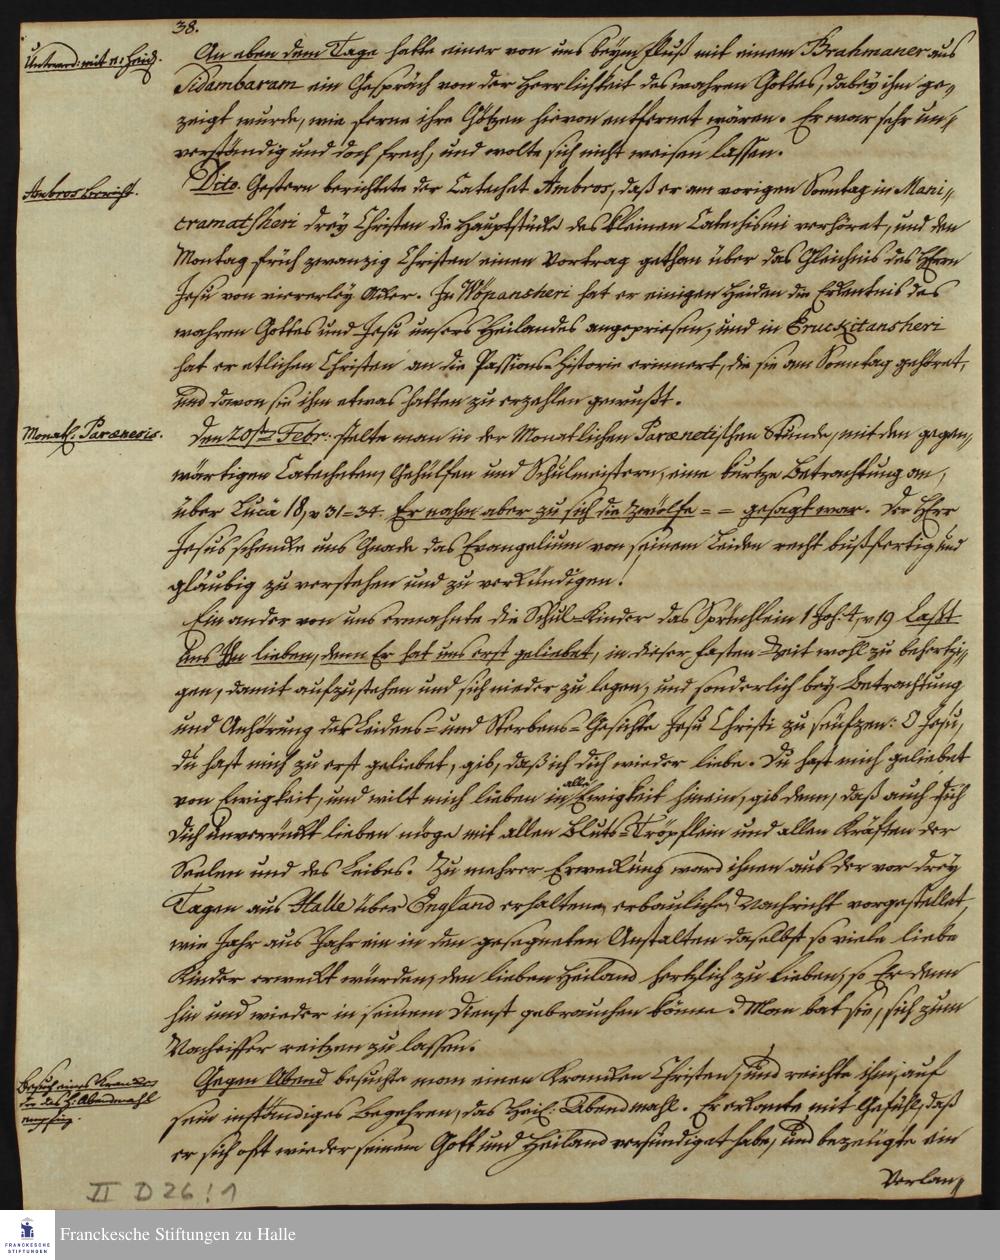 38.
Unterred: mit e: Heid.
An eben dem Tage hatte einer von uns beym Fluß mit einem Brahmaner aus
Sidambaram ein Gespräch von der Herrlichkeit des wahren Gottes, dabey ihm ge„
zeigt wurde, wie ferne ihre Götzen hievon entfernet wären. Er war sehr un„
verständig und doch frech, und wolte sich nicht weisen lassen.
Ambros Bericht.
Dito. Gestern berichtete der Catechet Ambros, daß er am vorigen Sonntag in Mani„
cramatsheri drey Christen die Hauptstücke des kleinen Catechismi verhöret, und den
Montag früh zwanzig Christen einen Vortrag gethan über das Gleichnis des HErrn
Jesu von viererley Acker. In Wöpansheri hat er einigen Heiden die Erkentnis des
wahren Gottes und Jesu unsers Heilandes angepriesen, und in Eruckitansheri
hat er etlichen Christen an die Passions-Historie erinnert, die sie am Sonntag gehöret,
und davon sie ihm etwas hatten zu erzehlen gewußt.
Monatl. Parænesis.
Den 20sten Febr: stelte man in der Monatlichen Parænetischen Stunde, mit den gegen„
wärtigen Catecheten, Gehülfen und Schulmeistern, eine kurtze Betrachtung an,
über Lucä 18, v 31-34. Er nahm aber zu sich die Zwölfe = = gesagt war. Der HErr
Jesus schencke uns Gnade das Evangelium von seinem Leiden recht bußfertig und
gläubig zu verstehen und zu verkündigen!
Ein ander von uns ermahnte die Schul-Kinder das Sprüchlein 1 Joh: 4, v 19 Lasst
uns Ihn lieben, denn Er hat uns erst geliebet, in dieser Fasten-Zeit wohl zu behertzi„
gen, damit aufzustehen und sich nieder zu legen, und sonderlich bey Betrachtung
und Anhörung der Leidens- und Sterbens-Geschichte Jesu Christi zu seufzen: O Jesu,
du hast mich zu erst geliebet, gib, daß ich dich wieder liebe. Du hast mich geliebet
von Ewigkeit, und wilt mich lieben in alle Ewigkeit hinein, gib denn, daß auch ich
dich unverrückt lieben möge mit allen Bluts-Tröpflein und allen Kräften der
Seelen und des Leibes. Zu mehrer Erweckung ward ihnen aus der vor drey
Tagen aus Halle über England erhaltenen erbaulichen Nachricht vorgestellet,
wie Jahr aus Jahr ein in den gesegneten Anstalten daselbst so viele liebe
Kinder erweckt würden, den lieben Heiland hertzlich zu lieben, so Er denn
hin und wieder in seinem Dienst gebrauchen könne. Man bat sie, sich zum
Nacheiffer reitzen zu lassen.
Besuch eines Krancken
der das H: Abendmahl
empfing.
Gegen Abend besuchte man einen Krancken Christen, und reichte ihm, auf
sein inständiges Begehren, das Heil: Abendmahl. Er erkante mit Gefühl, daß
er sich oft wieder seinen Gott und Heiland versündiget habe, und bezeugte ein
Verlan„
II D 26:1
FRANCKESCHE
STIFTUNGEN
Franckesche Stiftungen zu Halle